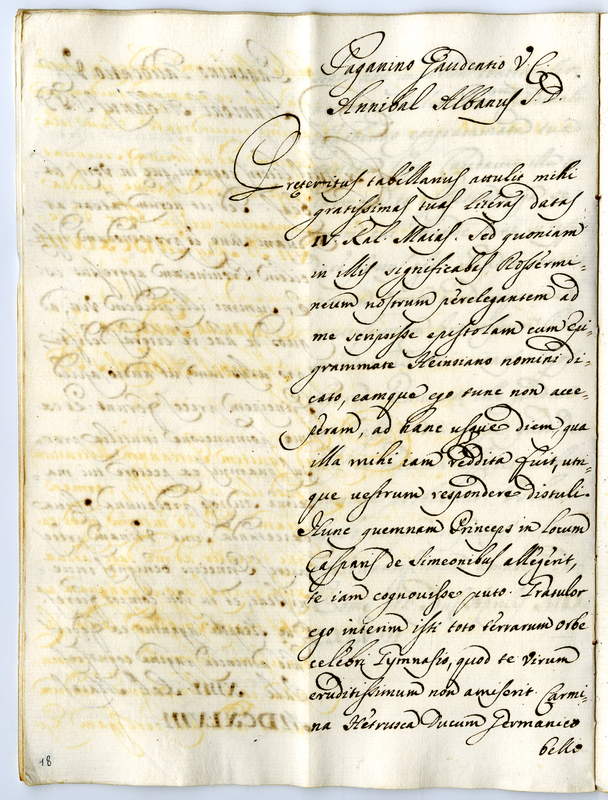 Paganino Gaudentio V. C.
Annibal Albanus S. D.
Preteritus tabellarius attulit mihi
gratissimas tuas literas datas
IV. Kal. Maias. Sed quoniam
in illis significabas Rossermi-
neum nostrum perelegantem ad
me scripsisse epistolam cum Epi-
grammate Heinsiano nomini di-
cato, eamque ego tunc non acce-
peram, ad hanc usque diem qua
illa mihi iam reddita fuit, utri-
que vestrum respondere distuli.
Nunc quemnam Princeps in locum
Gasparis de Simeonibus allegerit,
te iam cognovisse puto. Gratulor
ego interim isti toto terrarum orbe
celebri Gymnasio, quod te virum
eruditissimum non amiserit. Carmi-
na Hetrusca Ducum Germanico
bello
18